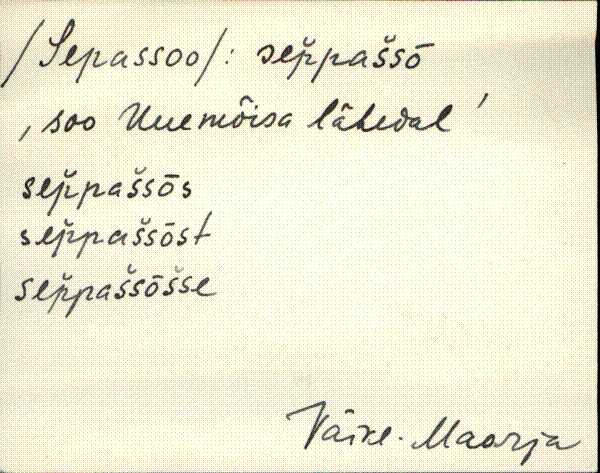 /Sepassoo/: sep̆pas̆sō
‚ soo Uuemõisa lähedal ’
sep̆pas̆sōs
sep̆pas̆sōst
sep̆pas̆sōs̆se
Väike-Maarja